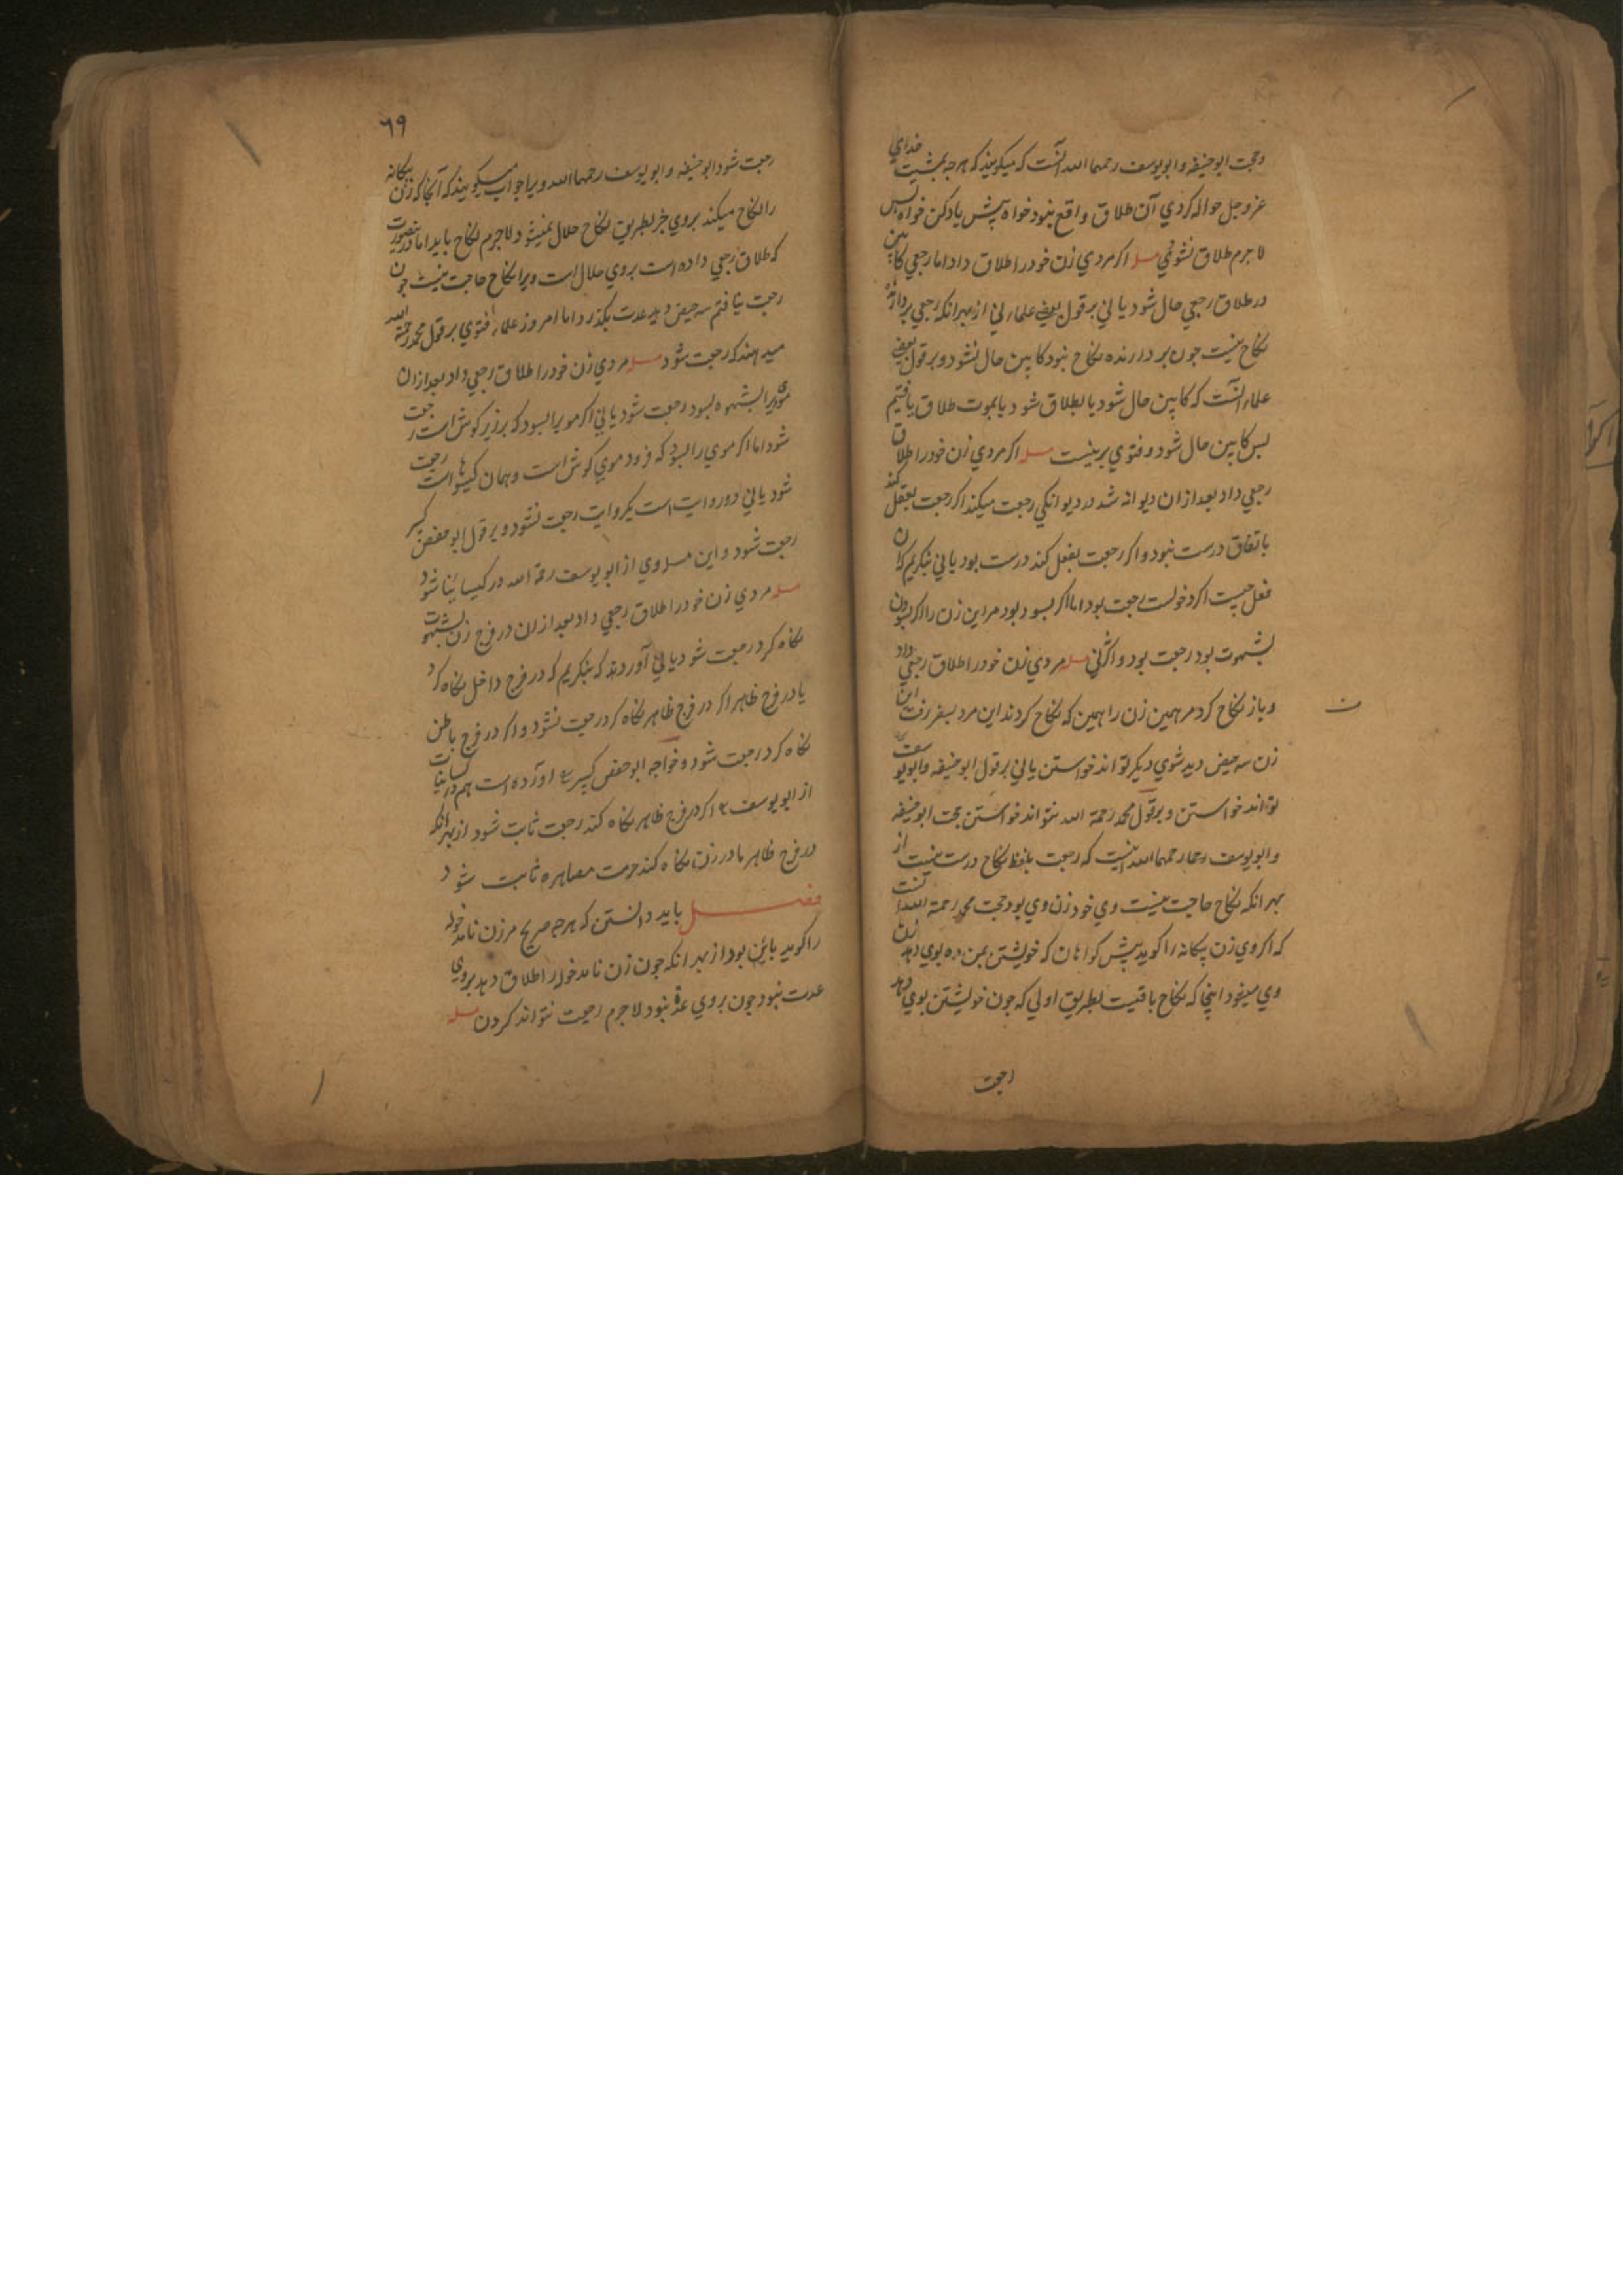 وحجت ابو حنیفه وابو یوسف رحمهما الله آنست که میکویند که هرجه بمشیت خدای
عز وجل حواله کردی آن طلاق واقع نبود خواه پیش یاد کن خواه پس
لا جرم طلاق نشود مسله اکر مردی زن خود را طلاق داد اما رجعی کابین
در طلاق رجعی حال شود یا نی بر قول بعضی علما نی از بهر انکه رجعی بردارنده
نکاح نیست جون بردارنده نکاح نبود کابین حال نشود و بر قول بعضی
علما آنست که کابین حال شود یا بطلاق شود یا بموت طلاق یافتیم
پس کابین حال شود و فتوی برینست مسله اکر مردی زن خود را طلاق
رجعی داد بعد از ان دیوانه شد در دیوانکی رجعت میکند اکر رجعت بعقل کند
باتفاق درست نبود و اکر رجعت بفعل کند درست بود یا نی بنکریم که ان
فعل جیست اکر دخولست رجعت بود اما اکر بسود بود مراین زن را اکر بسودن
بشهوت بود رجعت بود و اکر نی نی مسله مردی زن خود را طلاق رجعی داد
و باز نکاح کرد مر همین زن را همین که نکاح کردند این مرد بسفر رفت این
زن سه حیض دید شوی دیکر تواند خواستن یا نی بر قول ابو حنیفه وابو یوسف
تواند خواستن و بر قول محمد رحمة الله نتواند خواستن حجت ابو حنیفه
وابو یوسف رحمهما الله اینست که رجعت بلفظ نکاح درست نیست از
بهر انکه نکاح حاجت نیست وی خود زن وی بود حجت محمد رحمة الله آنست
که اکر وی زن بیکانه را کوید پیش کواهان که خویشتن بمن ده بوی دهد زن
وی میشود اینجا که نکاح باقیست بطریق اولی که جون خویشتن بوی دهد
رجعت
٦٩
رجعت شود ابو حنیفه وابو یوسف رحمهما الله ویرا جواب میکویند که آنجا که زن بیکانه
را نکاح میکند بروی جز بطریق نکاح حلال نمیشود لاجرم نکاح باید اما درینصورت
که طلاق رجعی داده است بروی حلال است ویرا نکاح حاجت نیست جون
رجعت نیافتیم سه حیض دید عدت بکذرد اما امروز علما فتوی بر قول محمد رحمة الله
میدهند که رجعت شود مسله مردی زن خود را طلاق رجعی داد بعد از ان
مویرا بشهوه بسود رجعت شود یا نی اکر مویرا بسود که برزیر کوش است رجعت
شود اما اکر موی را بسود که فرود موی کوش است و همان کیسوهاست رجعت
شود یا نی دو روایت است یکروایت رجعت نشود و بر قول ابو حفص کبیر
رجعت شود و این مسله وی از ابو یوسف رحمة الله در کیسانیا شود
مسله مردی زن خود را طلاق رجعی داد بعد از ان در فرج زن بشهوت
نکاه کرد رجعت شود یا نی آوردند که بنکریم که در فرج داخل نکاه کرد
یا در فرج ظاهر اکر در فرج ظاهر نکاه کرد رجعت نشود و اکر در فرج باطن
نکاه کرد رجعت شود و خواجه ابو حفص کبیر اورده است هم در کیسانیات
از ابو یوسف اکر در فرج ظاهر نکاه کند رجعت ثابت شود از بهر انکه
در فرج ظاهر مادر زن نکاه کند حرمت مصاهره ثابت شود
فصل باید دانستن که هرجه صریح مر زن نامدخوله
را کوید باین بود از بهر انکه جون زن نامدخوله را طلاق دهد بروی
عدت نبود جون بروی عدة نبود لاجرم رجعت نتواند کردن مسله